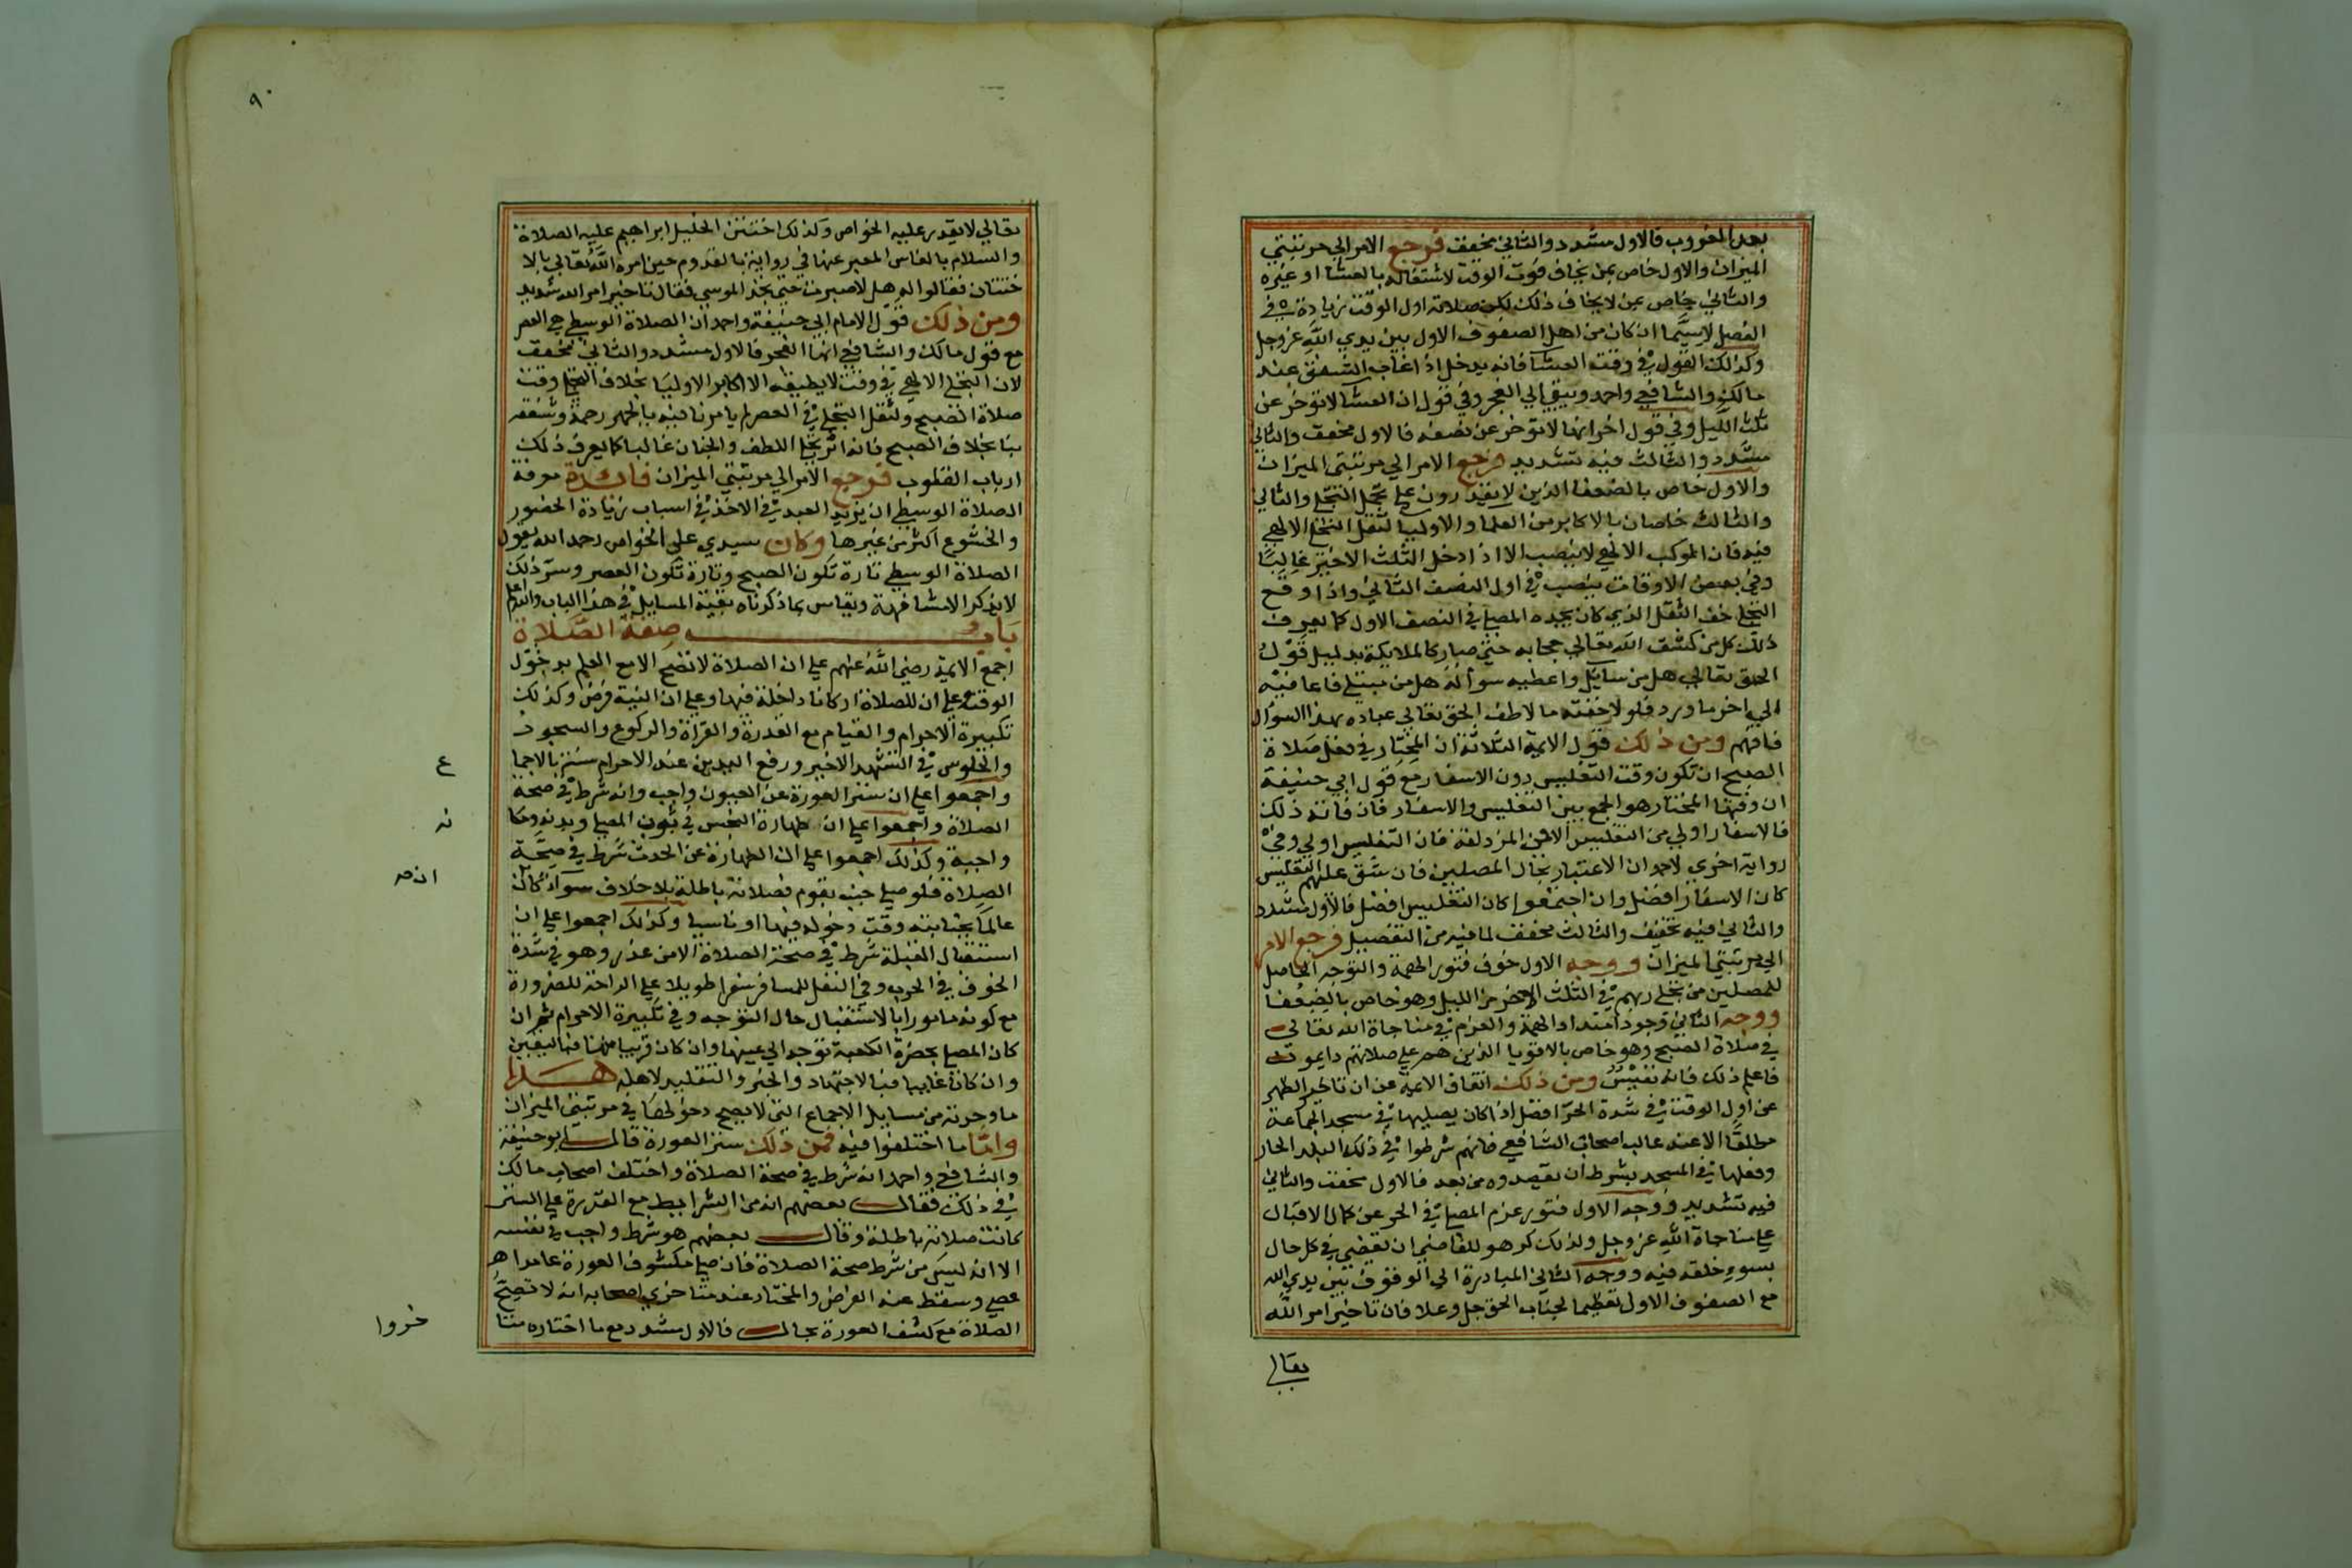 بعد الغروب فالاول مشدد والثاني مخفف فرجع الامر الي مرتبتي
الميزان والاول خاص بمن يخاف فوت الوقت لاشتغاله بالعشا او غيره
والثاني خاص بمن لا يخاف ذلك لكن صلاته اول الوقت زيادة في
الفضل لاسيما ان كان من اهل الصفوف الاول بين يدي الله عز وجل
وكذلك القول في وقت العشا فانه يدخل اذا غاب الشفق عند
مالك والشافعي واحمد ويبقي الي الفجر وفي قول ان العشا لا توخر عن
ثلث الليل وفي قول اخر انها لا توخر عن نصفه فالاول مخفف والثاني
مشدد والثالث فيه تشديد فرجع الامر الي مرتبتي الميزان
والاول خاص بالضعفا الذين لا يقدرون علي تحمل التجلي والثاني
والثالث خاصان بالاكابر من العلما والاوليا لثقل التجلي الالهي
فيه فان الموكب الالهي لا ينصب الا اذا دخل الثلث الاخير غالبا
وفي بعض الاوقات ينصب في اول النصف الثاني واذا وقع
التجلي خف الثقل الذي كان يجده المصلي في النصف الاول كما يعرف
ذلك كل من كشف الله تعالي حجابه حتي صار كالملايكة بدليل قول
الحق تعالي هل من سايل واعطيه سؤاله هل من مبتلي فاعافيه
الي اخر ما ورد فلولا خفته ما لاطف الحق تعالي عباده بهذا السؤال
فافهم ومن ذلك قول الايمة الثلاثة ان المختار في فعل صلاة
الصبح ان تكون وقت التغليس دون الاسفار مع قول ابي حنيفة
ان وقتها المختار هو الجمع بين التغليس والاسفار فان فاته ذلك
فالاسفار اولي من التغليس الا في المزدلفة فان التغليس اولي وفي
رواية اخري لاحمد ان الاعتبار بحال المصلين فان شق عليهم التغليس
كان الاسفار افضل وان اجتمعوا كان التغليس افضل فالاول مشدد
والثاني فيه تخفيف والثالث مخفف لما فيه من التفصيل فرجع الامر
الي مرتبتي الميزان ووجه الاول خوف فتور الهمة والتوجه الحاصل
للمصلين من تجلي ربهم في الثلث الاخر من الليل وهو خاص بالضعفا
ووجه الثاني وجود امتداد الهمة والعزم في مناجاة الله تعالي
في صلاة الصبح وهو خاص بالاقويا الذين هم علي صلاتهم دايمون
فاعلم ذلك فانه نفيس ومن ذلك اتفاق الايمة عن ان تاخير الظهر
عن اول الوقت في شدة الحر افضل اذا كان يصليها في مسجد الجماعة
مطلقا الا عند غالب اصحاب الشافعي فانهم شرطوا في ذلك البلد الحار
وفعلها في المسجد بشرط ان يقصدوه من بعد فالاول مخفف والثاني
فيه تشديد ووجه الاول فتور عزم المصلي في الحر عن كمال الاقبال
علي مناجاة الله عز وجل ولذلك كره هو للقاضي ان يقضي في كل حال
يسوء خلقه فيه ووجه الثاني المبادرة الي الوقوف بين يدي الله
مع الصفوف الاول تعظيما لجناب الحق جل وعلا فان تاخير امر الله
تعالي
٩٠
تعالي لا يقدر عليه الخواص ولذلك اختتن الخليل ابراهيم عليه الصلاة
والسلام بالفاس المعبر عنها في رواية بالقدوم حين امره الله تعالي بالا
ختتان فقالوا له هل لا صبرت حتي تجد الموسي فقال تاخير امر الله شديد
ومن ذلك قول الامام ابي حنيفة واحمد ان الصلاة الوسطي هي العصر
مع قول مالك والشافعي انها الفجر فالاول مشدد والثاني مخفف
لان التجلي الالهي في وقت لا يطيقه الا اكابر الاوليا بخلاف التجلي وقت
صلاة الصبح ولثقل التجلي في العصر لم يامرنا فيه بالجهر رحمة وشفقه
بنا بخلاف الصبح فانه اثر تجلي اللطف والحنان غالبا كما يعرف ذلك
ارباب القلوب فرجع الامر الي مرتبتي الميزان فايدة معرفة
الصلاة الوسطي ان يزيد العبد في الاخذ في اسباب زيادة الحضور
والخشوع اكثر من غيرها وكان سيدي علي الخواص رحمه الله يقول
الصلاة الوسطي تارة تكون الصبح وتارة تكون العصر وسر ذلك
لا يذكر الا مشافهة ويقاس بما ذكرناه بقية المسايل في هذا الباب والله اعلم
باب صفة الصلاة
اجمع الايمة رضي الله عنهم علي ان الصلاة لا تصح الا مع العلم بدخول
الوقت وعلي ان للصلاة اركانا داخلة فيها وعلي ان النية فرض وكذلك
تكبيرة الاحرام والقيام مع القدرة والقراة والركوع والسجود
والجلوس في التشهد الاخير ورفع اليدين عند الاحرام سنة بالاجما
ع
واجمعوا علي ان ستر العورة عن العيون واجب وانه شرط في صحة
الصلاة واجمعوا علي ان طهارة النجس في ثوب المصلي وبدنه ومكا
نه
واجبة وكذلك اجمعوا علي ان الطهارة عن الحدث شرط في صحة
الصلاة فلو صلي جنب بقوم فصلاته باطلة بلا خلاف سواء كان
عالما بجنابته وقت دخوله فيها او ناسيا وكذلك اجمعوا علي ان
استقبال القبلة شرط في صحة الصلاة الا من عذر وهو في شدة
الخوف في الحرب وفي النفل للمسافر سفرا طويلا علي الراحلة للضرورة
مع كونه مامورا بالاستقبال حال التوجه وفي تكبيرة الاحرام ثم ان
كان المصلي بحضرة الكعبة توجه الي عينها وان كان قريبا منها فباليقين
وان كان غايبا فبالاجتهاد والخبر والتقليد لاهله هذا
ما وجدته من مسايل الاجماع التي لا يصح دخولها في مرتبتي الميزان
واما ما اختلفوا فيه فمن ذلك ستر العورة قال ابو حنيفة
والشافعي واحمد انه شرط في صحة الصلاة واختلف اصحاب مالك
في ذلك فقال بعضهم انه من الشرايط مع القدرة علي الستر
كانت صلاته باطلة وقال بعضهم هو شرط واجب في نفسه
الا انه ليس من شرط صحة الصلاة فان صلي مكشوف العورة عامدا
عصي وسقط عنه الفرض والمختار عند متاخري اصحابه انه لا تصح
الصلاة مع كشف العورة بحال فالاول مشدد مع ما اختاره متا
خروا